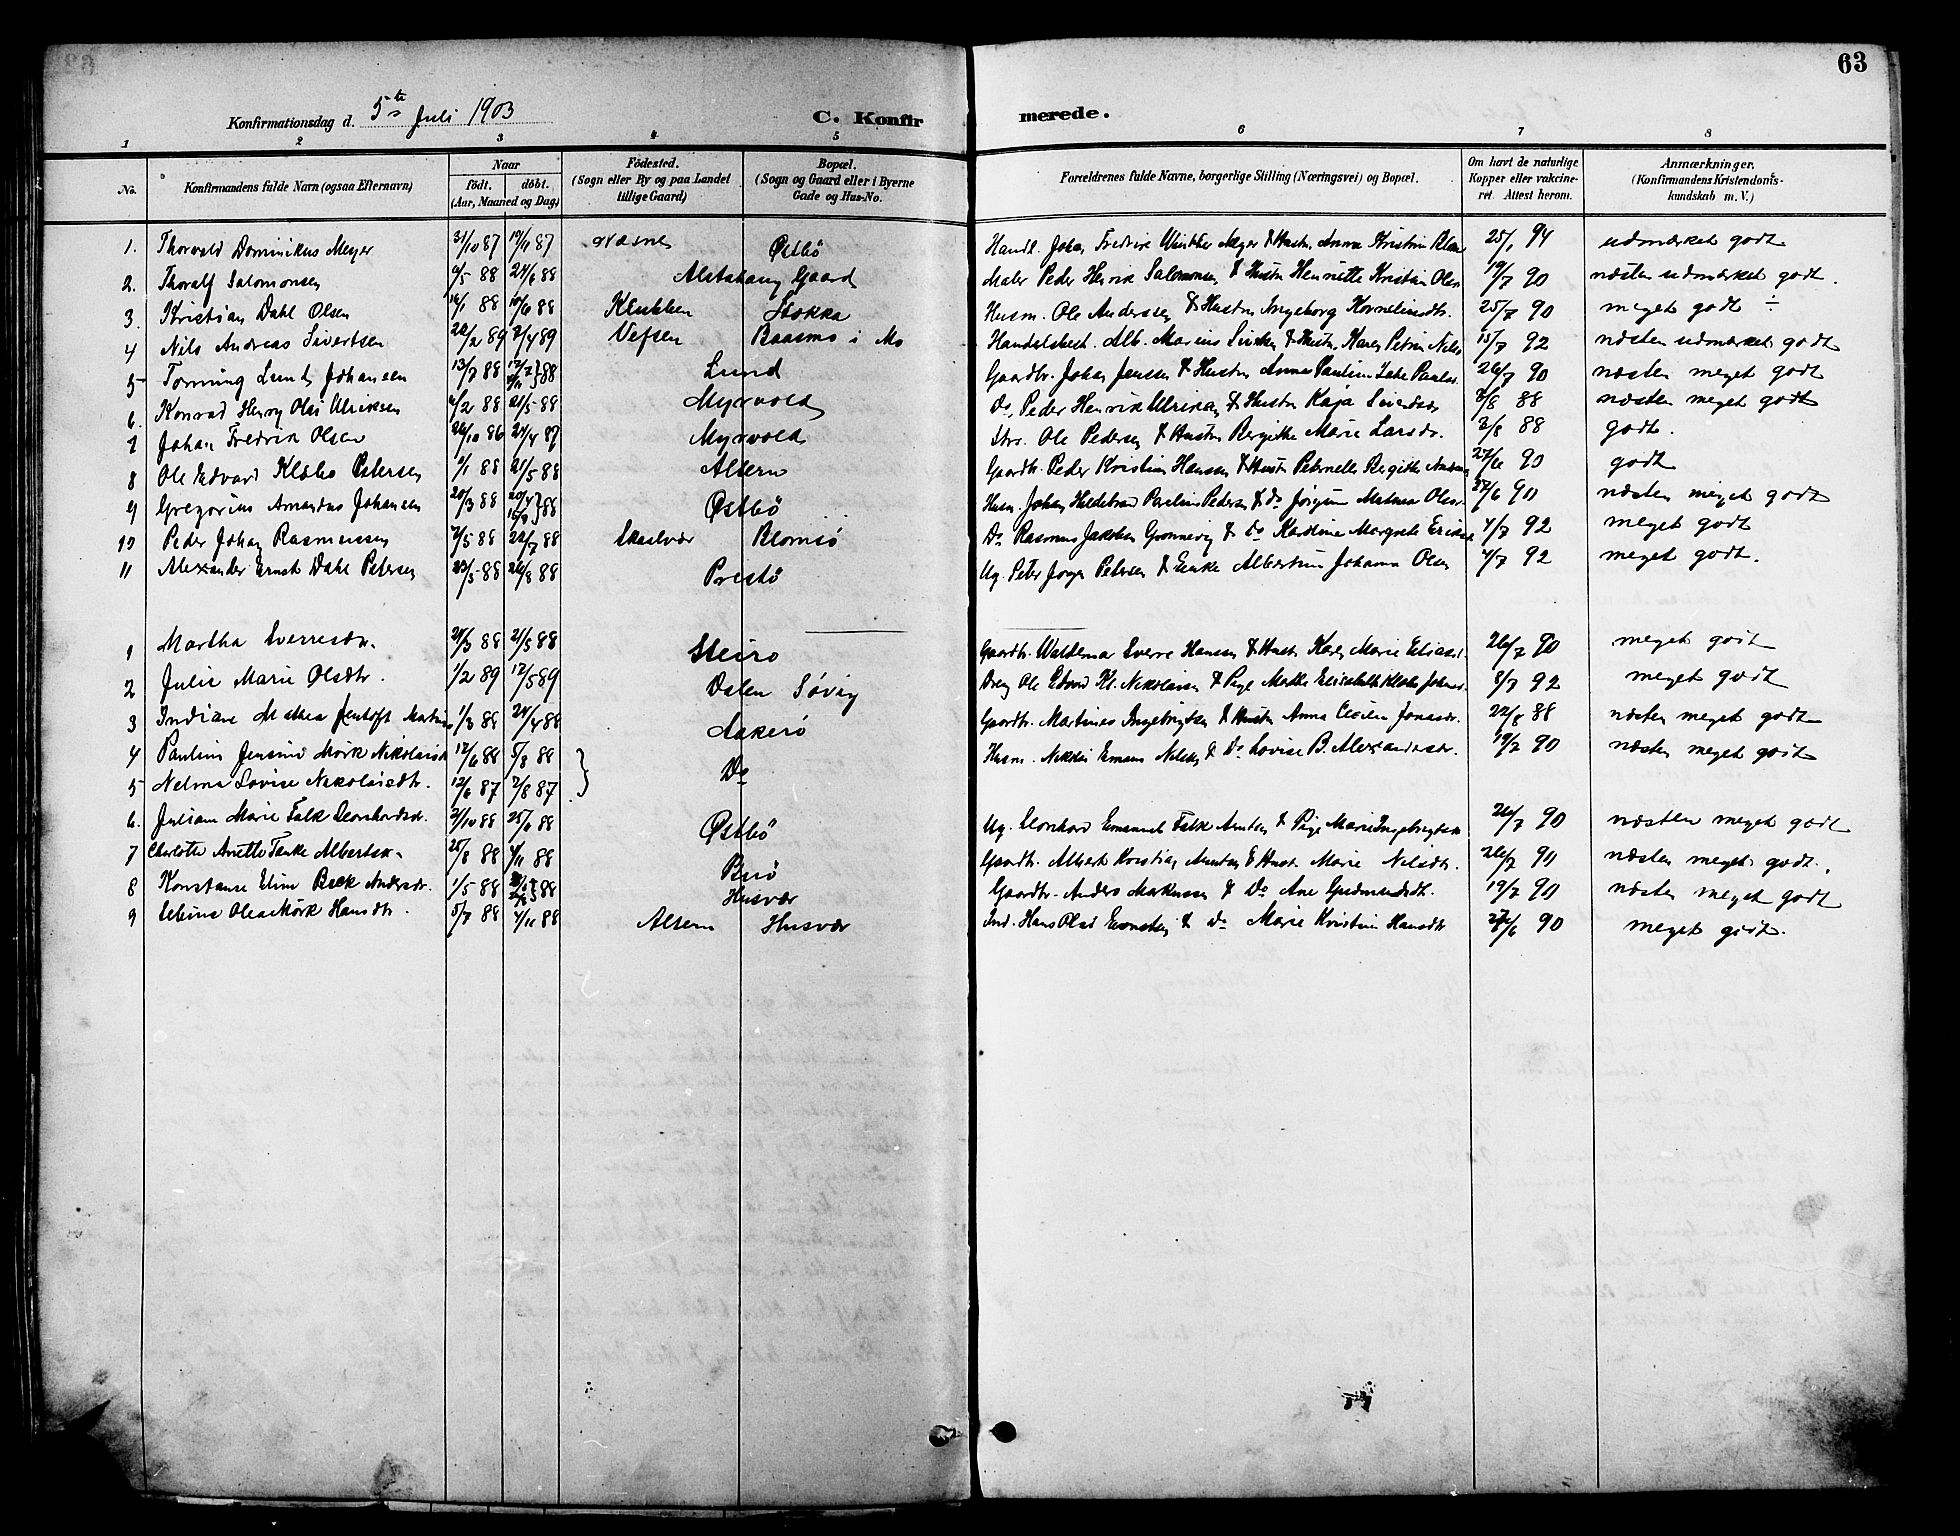 63
Konfirmationsdag d. 5te Juli 1903 C. Konfirmerede.
1 2 3 4 5 6 7 8
No. Konfirmandens fulde Navn (ogsaa Efternavn) Naar født. døbt. (Aar, Maaned og Dag) Fødested. (Sogn eller By og paa Landet tillige Gaard) Bopæl. (Sogn og Gaard eller i Byerne Gade og Hus-No. Forældrenes fulde Navne, borgerlige Stilling (Næringsvei) og Bopæl. Om havt de naturlige Kopper eller vakcineret. Attest herom. Anmærkninger. (Konfirmandens Kristendomskundskab m. V.)
1. Thorvald Dominikus Meyer 31/10 87 87 Østbö Handl. Johan Fredrik Winther Meyer & Hustr. Anna Kristine 25/1 94 udmærket godt
2. Thoralf Salomonsen 9/5 88 24/6 88 Alstahaug Gaard Maler Peder Henrik Salomonsen & Hustr Henriette Kristine Olsen 19/7 90 næsten udmærket godt.
3. Kristian Dahl Olsen 16/1 88 10/6 88 Klubben Stokka Husm. Ole Anderssen & Hustru Ingeborg Korneliusdtr. 25/7 90 meget godt ÷
4 Nils Andreas Sivertsen 22/2 89 2/4 89 Vefsen Baasmo i Mo Handelsbest. Alb. Marius & Hustr. Karen Petrine Nilsd 15/7 92 næsten udmærket godt
5 Tønning Lund Johansen 13/7 88 88 Lund Gaardbr. Johan Jenssen & Hustru Anna Pauline 26/7 90 næsten meget godt
6. Konrad Henry Olai Ulriksen 4/2 88 21/5 88 Myrvold Do, Peder Henrik Ulriksen & Hustru Kaja 2/8 88 næsten meget godt
7 Johan Fredrik Olsen 26/10 86 24/4 87 Myrvold Ole Pedersen & Hustru Bergithe Marie Larsdr. 2/8 88 godt.
8 Ole Edvard Klæbo Petersen 2/1 88 21/5 88 Altern Gaardbr. Peder Kristian Hansen & Hustr Peternelle Bergitte 27/6 90 godt
9 Gregorius Amandus Johansen 20/3 88 88 Østbö Husm. Johan Hildebrad Paulinus Pedersen & Do Jørgine Mathea Olsdr. 27/6 90 næsten meget godt
10 Peder Johan Rasmussen 7/5 88 22/7 88 Skaalvær Blomsö Do Rasmus Jakobsen Grønnevig & do Karoline Margrete 4/7 92 meget godt
11 Alexander Ernst Dahl Petersen 23/5 88 26/8 88 Prestö Ug. Peter Jørgen Petersen & Enke Albertine Johanna Olsen 4/7 92 meget godt.
1 Martha Sverresdr. 29/3 88 21/5 88 Steiro Gaardbr. Waldemar Sverre Hansen & Hustr Karen Marie Eliasd. 26/7 90 meget godt
2 Julie Marie Olsdtr. 1/2 89 12/5 89 Østen Søvig Dreng Ole Edvard Kl. Nikolaisen & Pige Mathe Elisabeth Klæbo 8/7 92 meget godt
3 Indiane Mathea Jentoft 1/3 88 24/4 88 Aakerö Gaardbr. Martinus Ingebrigtsen & Hustr Anna Cecilie Jonasdr. 22/8 88 næsten meget godt
4 Pauline Jensine Mörk Nikolaisdr 12/6 88 5/8 88 } Do Husm. Nikolai Nilsen & Do Lovise B. Alexandersdr. 19/7 90 næsten meget godt
5 Nelma Lovise Nikolaisdtr. 12/6 87 7/8 87
6. Juliane Marie Falk Leonhardsdr. 21/10 88 25/11 88 Østbö Ug. Leonhard Emanuel Falk Arntsen & Pige Marie Ingebrigtsdr 26/7 90 næsten meget godt
7 Charlotte Anette Tanke Albertsdr. 25/8 88 4/11 88 Buö Gaardbr. Albert Kristian Arntsen & Hustr Marie Nilsdtr. 26/7 90 næsten meget godt.
8 Konstanse Eline Beck Andersdr. 1/5 88 88 Husvær Gaardbr. Anders Markussen & Do Ane Gudmundsdtr. 19/7 90 næsten meget godt
9 Olea Mörk Hansdtr. 5/7 88 4/11 88 Alsten Husvær Ind. Hans Olsen & do Marie Kristine Hansdtr 27/6 90 meget godt.